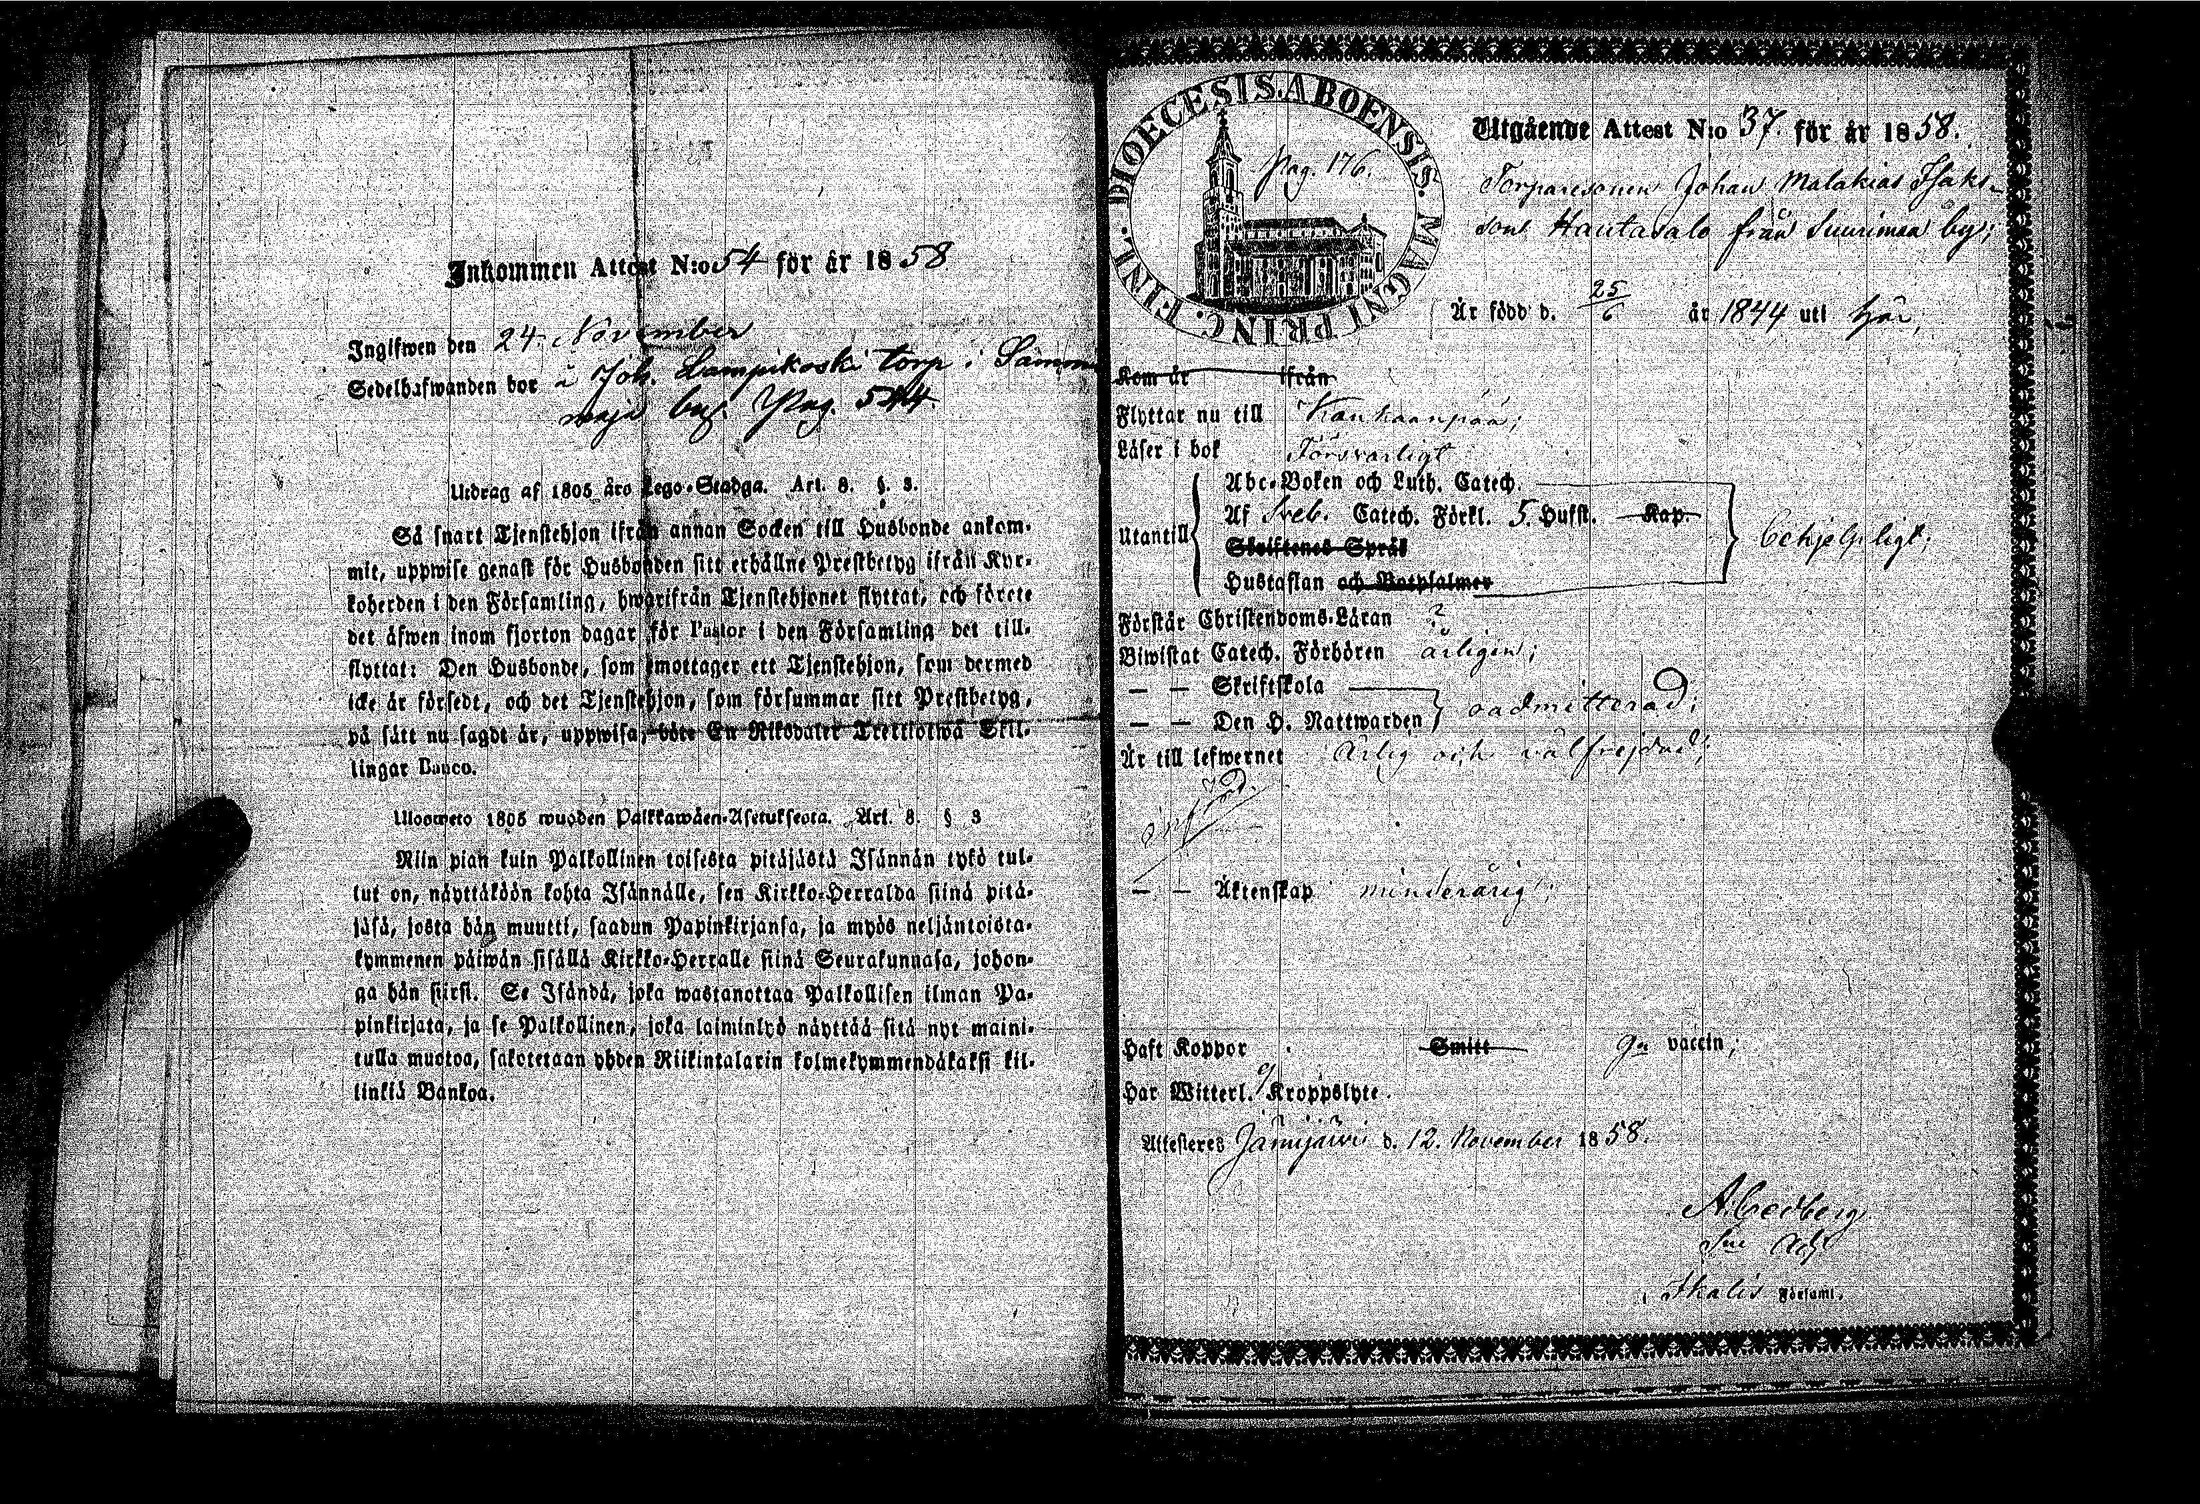 Inkommen Attest N:o 54 för år 1858
Inglfwen den 24 November
Sedelhafwanden bor å Joh. Lampikoski torp i Samm
maja by. Pag. 544.
Utdrag af 1805 års Lego-Stadga. Art. 8. §. 3.
Så snart Tjenstehjon ifrån annan Socken till Husbonde ankom-
mit, uppwise genast för Husbonden sitt erhållne Prestbetyg ifrån Kyr-
koherden i den Församling, hwarifrån Tjenstehjonet flyttat, och förete
det äfwen inom fjorton dagar för Pastor i den Församling det till-
flyttat: Den Husbonde, som emottager ett Tjenstehjon, som dermed
icke är försedt, och det Tjenstehjon, som försummar sitt Prestbetyg,
på sätt nu sagdt är, uppwisa, böte En Riksdaler Trettiotwå Skil-
lingar Banco.
Ulosweto 1805 wuoden Palkkawäen-Asetuksesta. Art. 8. § 3
Niin pian kuin Palkollinen toisesta pitäjästä Isännän tykö tul-
tut on, näyttäköön kohta Isännälle, sen Kirkko-Herralda siinä pitä-
jäsä, josta hän muutti, saadun Papinkirjansa, ja myös neljäntoista-
kymmenen päiwän sisällä Kirkko-Herralle siinä Seurakunnasa, johon-
ga hän siirsi. Se Isändä, joka wastanottaa Palkollisen ilman Pa-
pinkirjata, ja se Palkollinen, joka laiminlyö näyttää sitä nyt maini-
tulla muotoa, sakotetaan yhden Riikintalarin kolmekymmendäkaksi kil-
linkiä Bankoa.
DIOECESIS ABOENSIS. MAGNI PRINC. FINL.
Pag. 176.
Utgående Attest N:o 37. för år 1858.
Torparesonen Johan Malakias Isaks-
son Hautasalo från Suurimaa by;
Är född d. 25/6 år 1844 uti här;
Kom år ifrån
Flyttar nu till Kankaanpää;
Läser i bok Försvarligt
Utantill
Abc-Boken och Luth. Catech.
Af Sveb. Catech. Förkl. 5. Hufst. Kap.
Skriftenes Språk
Hustaflan och Botpsalmer
behjelpligt;
Förstår Christendoms-Läran ?
Biwistat Catech. Förhören årligen;
— — Skriftskola
— — Den H. Nattwarden
oadmitterad;
Är till lefwernet Ärlig och välfrejdad;
— — Äktenskap minderårig;
Haft Koppor Smitt gn vaccin;
Har Witterl. Kroppslyte.
Attesteres Jämijärvi d. 12. November 1858.
A. Cedberg
Ikalis Församl.